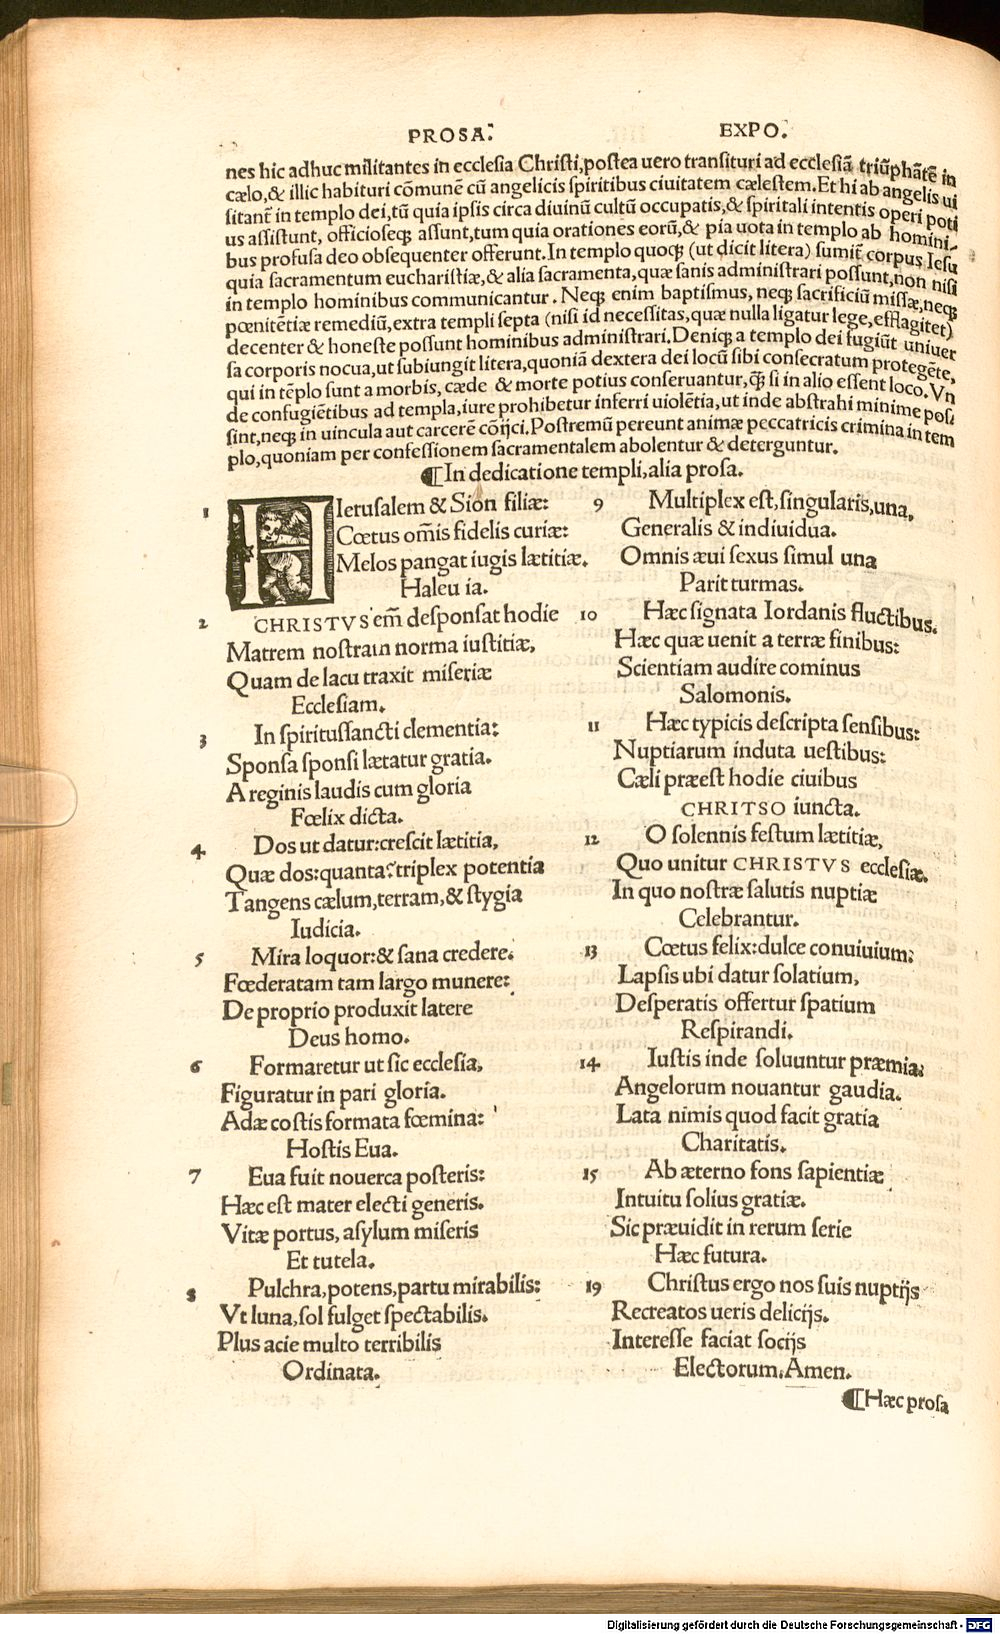 PROSA. EXPO.
nes hic adhuc militantes in ecclesia Christi, postea uero transituri ad ecclesiã triũphãtẽ in
cælo, & illic habituri cõmunẽ cũ angelicis spiritibus ciuitatem cælestem. Et hi ab angelis ui
sitant̃ in templo dei, tũ quia ipsis circa diuinũ cultũ occupatis, & spiritali intentis operi poti
us assistunt, officioseqꝫ assunt, tum quia orationes eorũ, & pia uota in templo ab homini-
bus profusa deo obsequenter offerunt. In templo quoqꝫ (ut dicit litera) sumit̃ corpus Iesu
quia sacramentum eucharistiæ, & alia sacramenta, quæ sanis administrari possunt, non nisi
in templo hominibus communicantur. Neqꝫ enim baptismus, neqꝫ sacrificiũ missæ, neqꝫ
pœnitẽtiæ remediũ, extra templi septa (nisi id necessitas, quæ nulla ligatur lege, efflagitet)
decenter & honeste possunt hominibus administrari. Deniqꝫ a templo dei fugiũt uniuer
sa corporis nocua, ut subiungit litera, quoniã dextera dei locũ sibi consecratum protegẽte,
qui in tẽplo sunt a morbis, cæde & morte potius conseruantur, q̃ꝫ si in alio essent loco. Vn
de confugiẽtibus ad templa, iure prohibetur inferri uiolẽtia, ut inde abstrahi minime pos/
sint, neqꝫ in uincula aut carcerẽ cõijci. Postremũ pereunt animæ peccatricis crimina in tem
plo, quoniam per confessionem sacramentalem abolentur & deterguntur.
¶In dedicatione templi, alia prosa.
1 HIerusalem & Sion filiæ:
Cœtus om̃is fidelis curiæ:
Melos pangat iugis lætitiæ.
Haleu ia.
2 CHRISTVS em̃ desponsat hodie
Matrem nostram norma iustitiæ,
Quam de lacu traxit miseriæ
Ecclesiam.
3 In spiritussancti clementia:
Sponsa sponsi lætatur gratia.
A reginis laudis cum gloria
Fœlix dicta.
4 Dos ut datur: crescit lætitia,
Quæ dos: quanta? triplex potentia
Tangens cælum, terram, & stygia
Iudicia.
5 Mira loquor: & sana credere.
Fœderatam tam largo munere:
De proprio produxit latere
Deus homo.
6 Formaretur ut sic ecclesia,
Figuratur in pari gloria.
Adæ costis formata fœmina:
Hostis Eua.
7 Eua fuit nouerca posteris:
Hæc est mater electi generis.
Vitæ portus, asylum miseris
Et tutela.
8 Pulchra, potens, partu mirabilis:
Vt luna, sol fulget spectabilis.
Plus acie multo terribilis
Ordinata.
9 Multiplex est, singularis, una,
Generalis & indiuidua.
Omnis æui sexus simul una
Parit turmas.
10 Hæc signata Iordanis fluctibus.
Hæc quæ uenit a terræ finibus:
Scientiam audire cominus
Salomonis.
11 Hæc typicis descripta sensibus:
Nuptiarum induta uestibus:
Cæli præest hodie ciuibus
CHRITSO iuncta.
12 O solennis festum lætitiæ,
Quo unitur CHRISTVS ecclesiæ.
In quo nostræ salutis nuptiæ
Celebrantur.
13 Cœtus felix: dulce conuiuium:
Lapsis ubi datur solatium,
Desperatis offertur spatium
Respirandi.
14 Iustis inde soluuntur præmia:
Angelorum nouantur gaudia.
Lata nimis quod facit gratia
Charitatis.
15 Ab æterno fons sapientiæ
Intuitu solius gratiæ.
Sic præuidit in rerum serie
Hæc futura.
19 Christus ergo nos suis nuptijs
Recreatos ueris delicijs.
Interesse faciat socijs
Electorum. Amen.
¶Hæc prosa
Digitalisierung gefördert durch die Deutsche Forschungsgemeinschaft - DFG